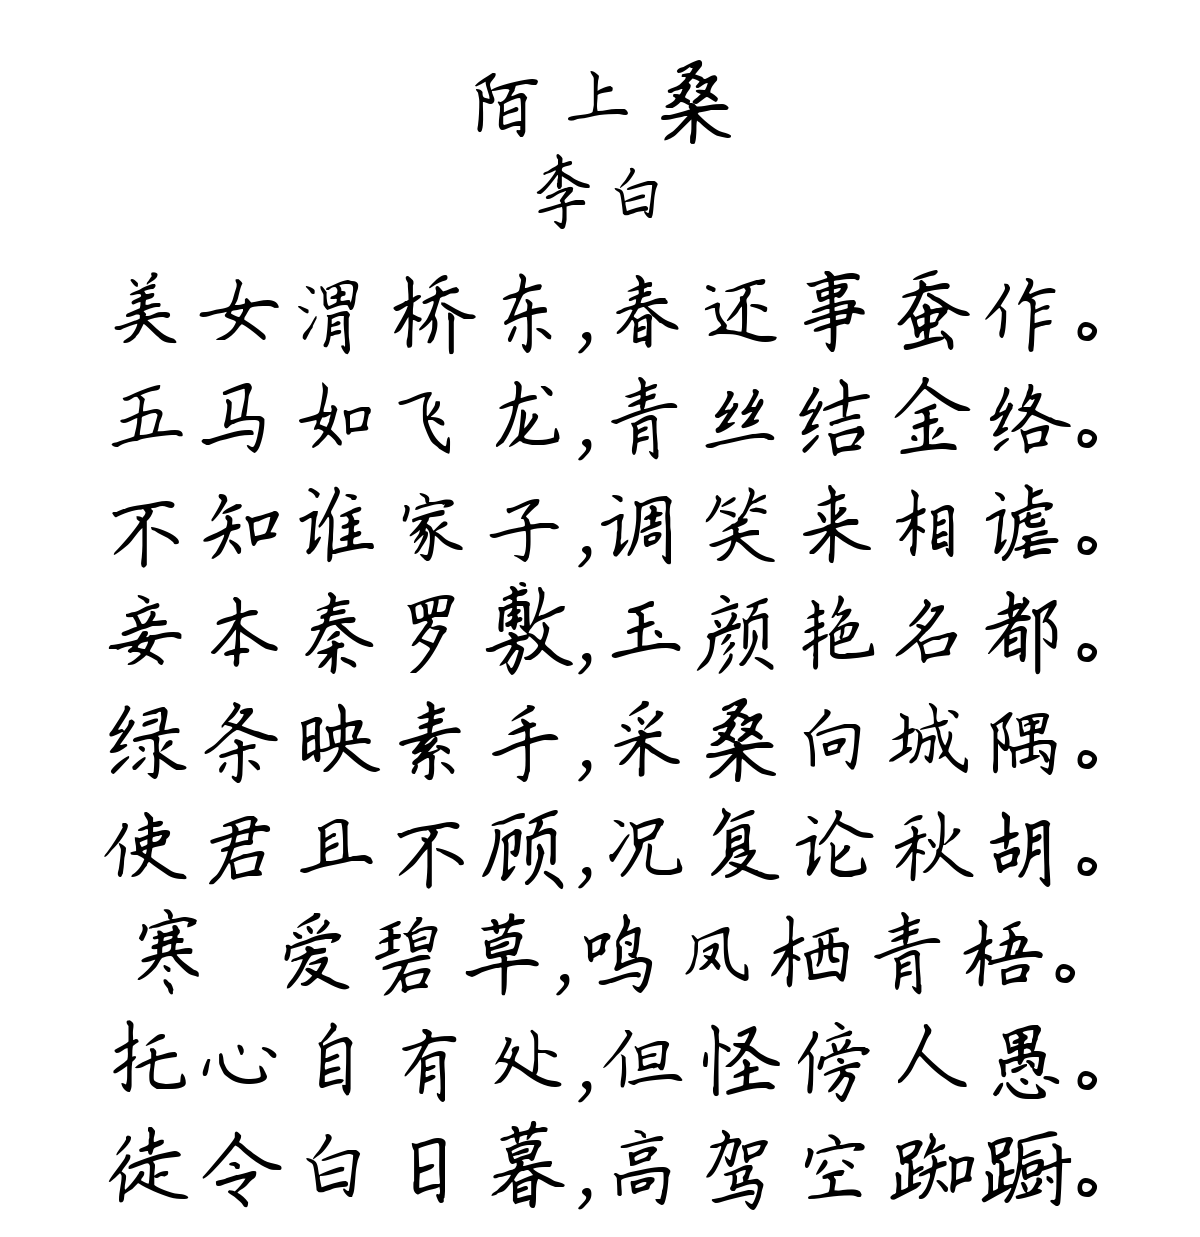 陌上桑
李白
美女渭桥东,春还事蚕作。
五马如飞龙,青丝结金络。
不知谁家子,调笑来相谑。
妾本秦罗敷,玉颜艳名都。
绿条映素手,采桑向城隅。
使君且不顾,况复论秋胡。
寒 爱碧草,鸣凤栖青梧。
托心自有处,但怪傍人愚。
徒令白日暮,高驾空踟蹰。